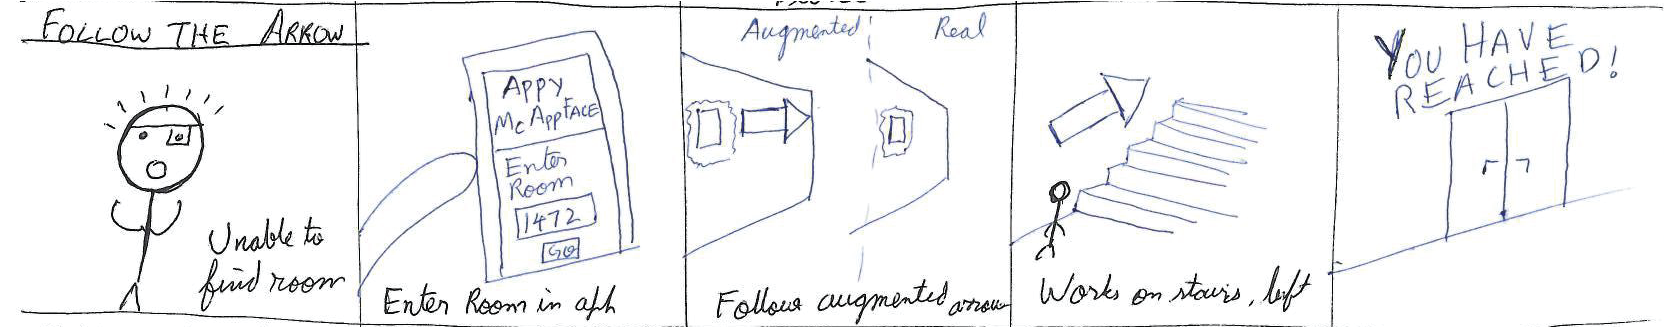 FOLLOW THE ARROW
Unable to
find room
APPY
McAPPFACE
Enter
Room
1472
GO
Enter Room in app
Augmented
Real
Follow augmented arrow
Works on stairs, lift
YOU HAVE
REACHED!